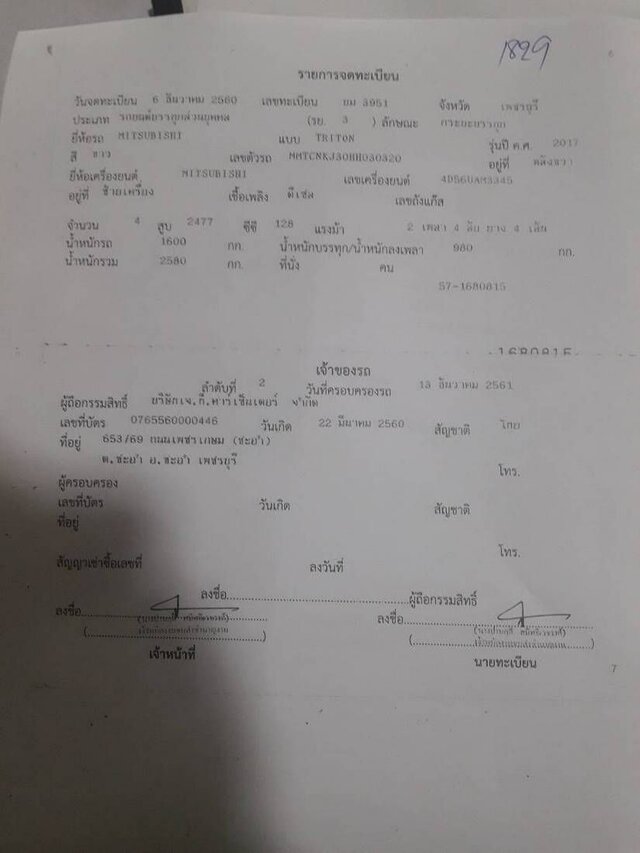 1829
6
รายการจดทะเบียน
วันจดทะเบียน 6 ธันวาคม 2560 เลขทะเบียน ยม 3951 จังหวัด เพชรบุรี
ประเภท รถยนต์บรรทุกส่วนบุคคล (รย. 3 ) ลักษณะ กระบะบรรทุก
ยี่ห้อรถ MITSUBISHI แบบ TRITON รุ่นปี ค.ศ. 2017
สี ขาว เลขตัวรถ MMTCNKJ30HH030320 อยู่ที่ หลังขวา
ยี่ห้อเครื่องยนต์ MITSUBISHI เลขเครื่องยนต์ 4D56UAM3345
อยู่ที่ ซ้ายเครื่อง เชื้อเพลิง ดีเซล เลขถังแก๊ส
จำนวน 4 สูบ 2477 ซีซี 128 แรงม้า 2 เพลา 4 ล้อ ยาง 4 เส้น
น้ำหนักรถ 1600 กก. น้ำหนักบรรทุก/น้ำหนักลงเพลา 980 กก.
น้ำหนักรวม 2580 กก. ที่นั่ง คน
57-1680815
1680815
เจ้าของรถ
ลำดับที่ 2 วันที่ครอบครองรถ 13 ธันวาคม 2561
ผู้ถือกรรมสิทธิ์ บริษัทเจ.กี.คาร์เซ็นเตอร์ จำกัด
เลขที่บัตร 0765560000446 วันเกิด 22 มีนาคม 2560 สัญชาติ ไทย
ที่อยู่ 653/69 ถนนเพชรเกษม (ชะอำ)
ต.ชะอำ อ.ชะอำ เพชรบุรี
โทร.
ผู้ครอบครอง
เลขที่บัตร วันเกิด สัญชาติ
ที่อยู่
โทร.
สัญญาเช่าซื้อเลขที่ ลงวันที่
ลงชื่อ ผู้ถือกรรมสิทธิ์
ลงชื่อ ลงชื่อ
เจ้าหน้าที่ นายทะเบียน
7